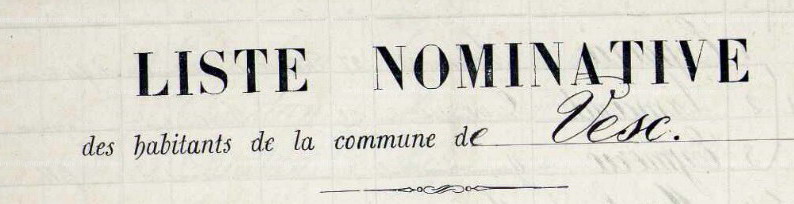 LISTE NOMINATIVE
des habitants de la commune de Vesc.